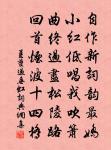 自作新詞韻最嬌
小紅低唱我吹簫
曲終過盡松陵路
回首煙波十四橋